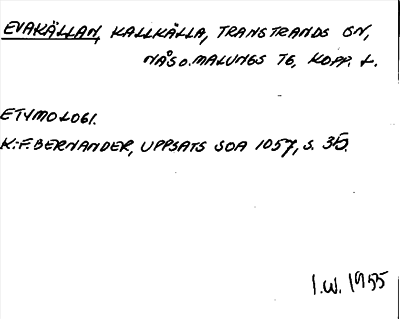 EVAKÄLLAN, KALLKÄLLA, TRANSTRANDS SN,
NÅS O. MALUNGS TG, KOPP. L.
ETYMOLOGI.
K:F. BERNANDER, UPPSATS SOA 1057, S. 35.
I.W. 1955